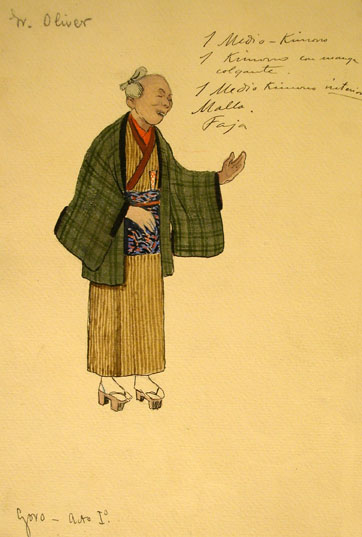 Sr. Oliver
1 Medio-Kimono
1 Kimono con manga
colgante.
1 Medio Kimono interior
Malla.
Faja
Goro - Acto Iº.